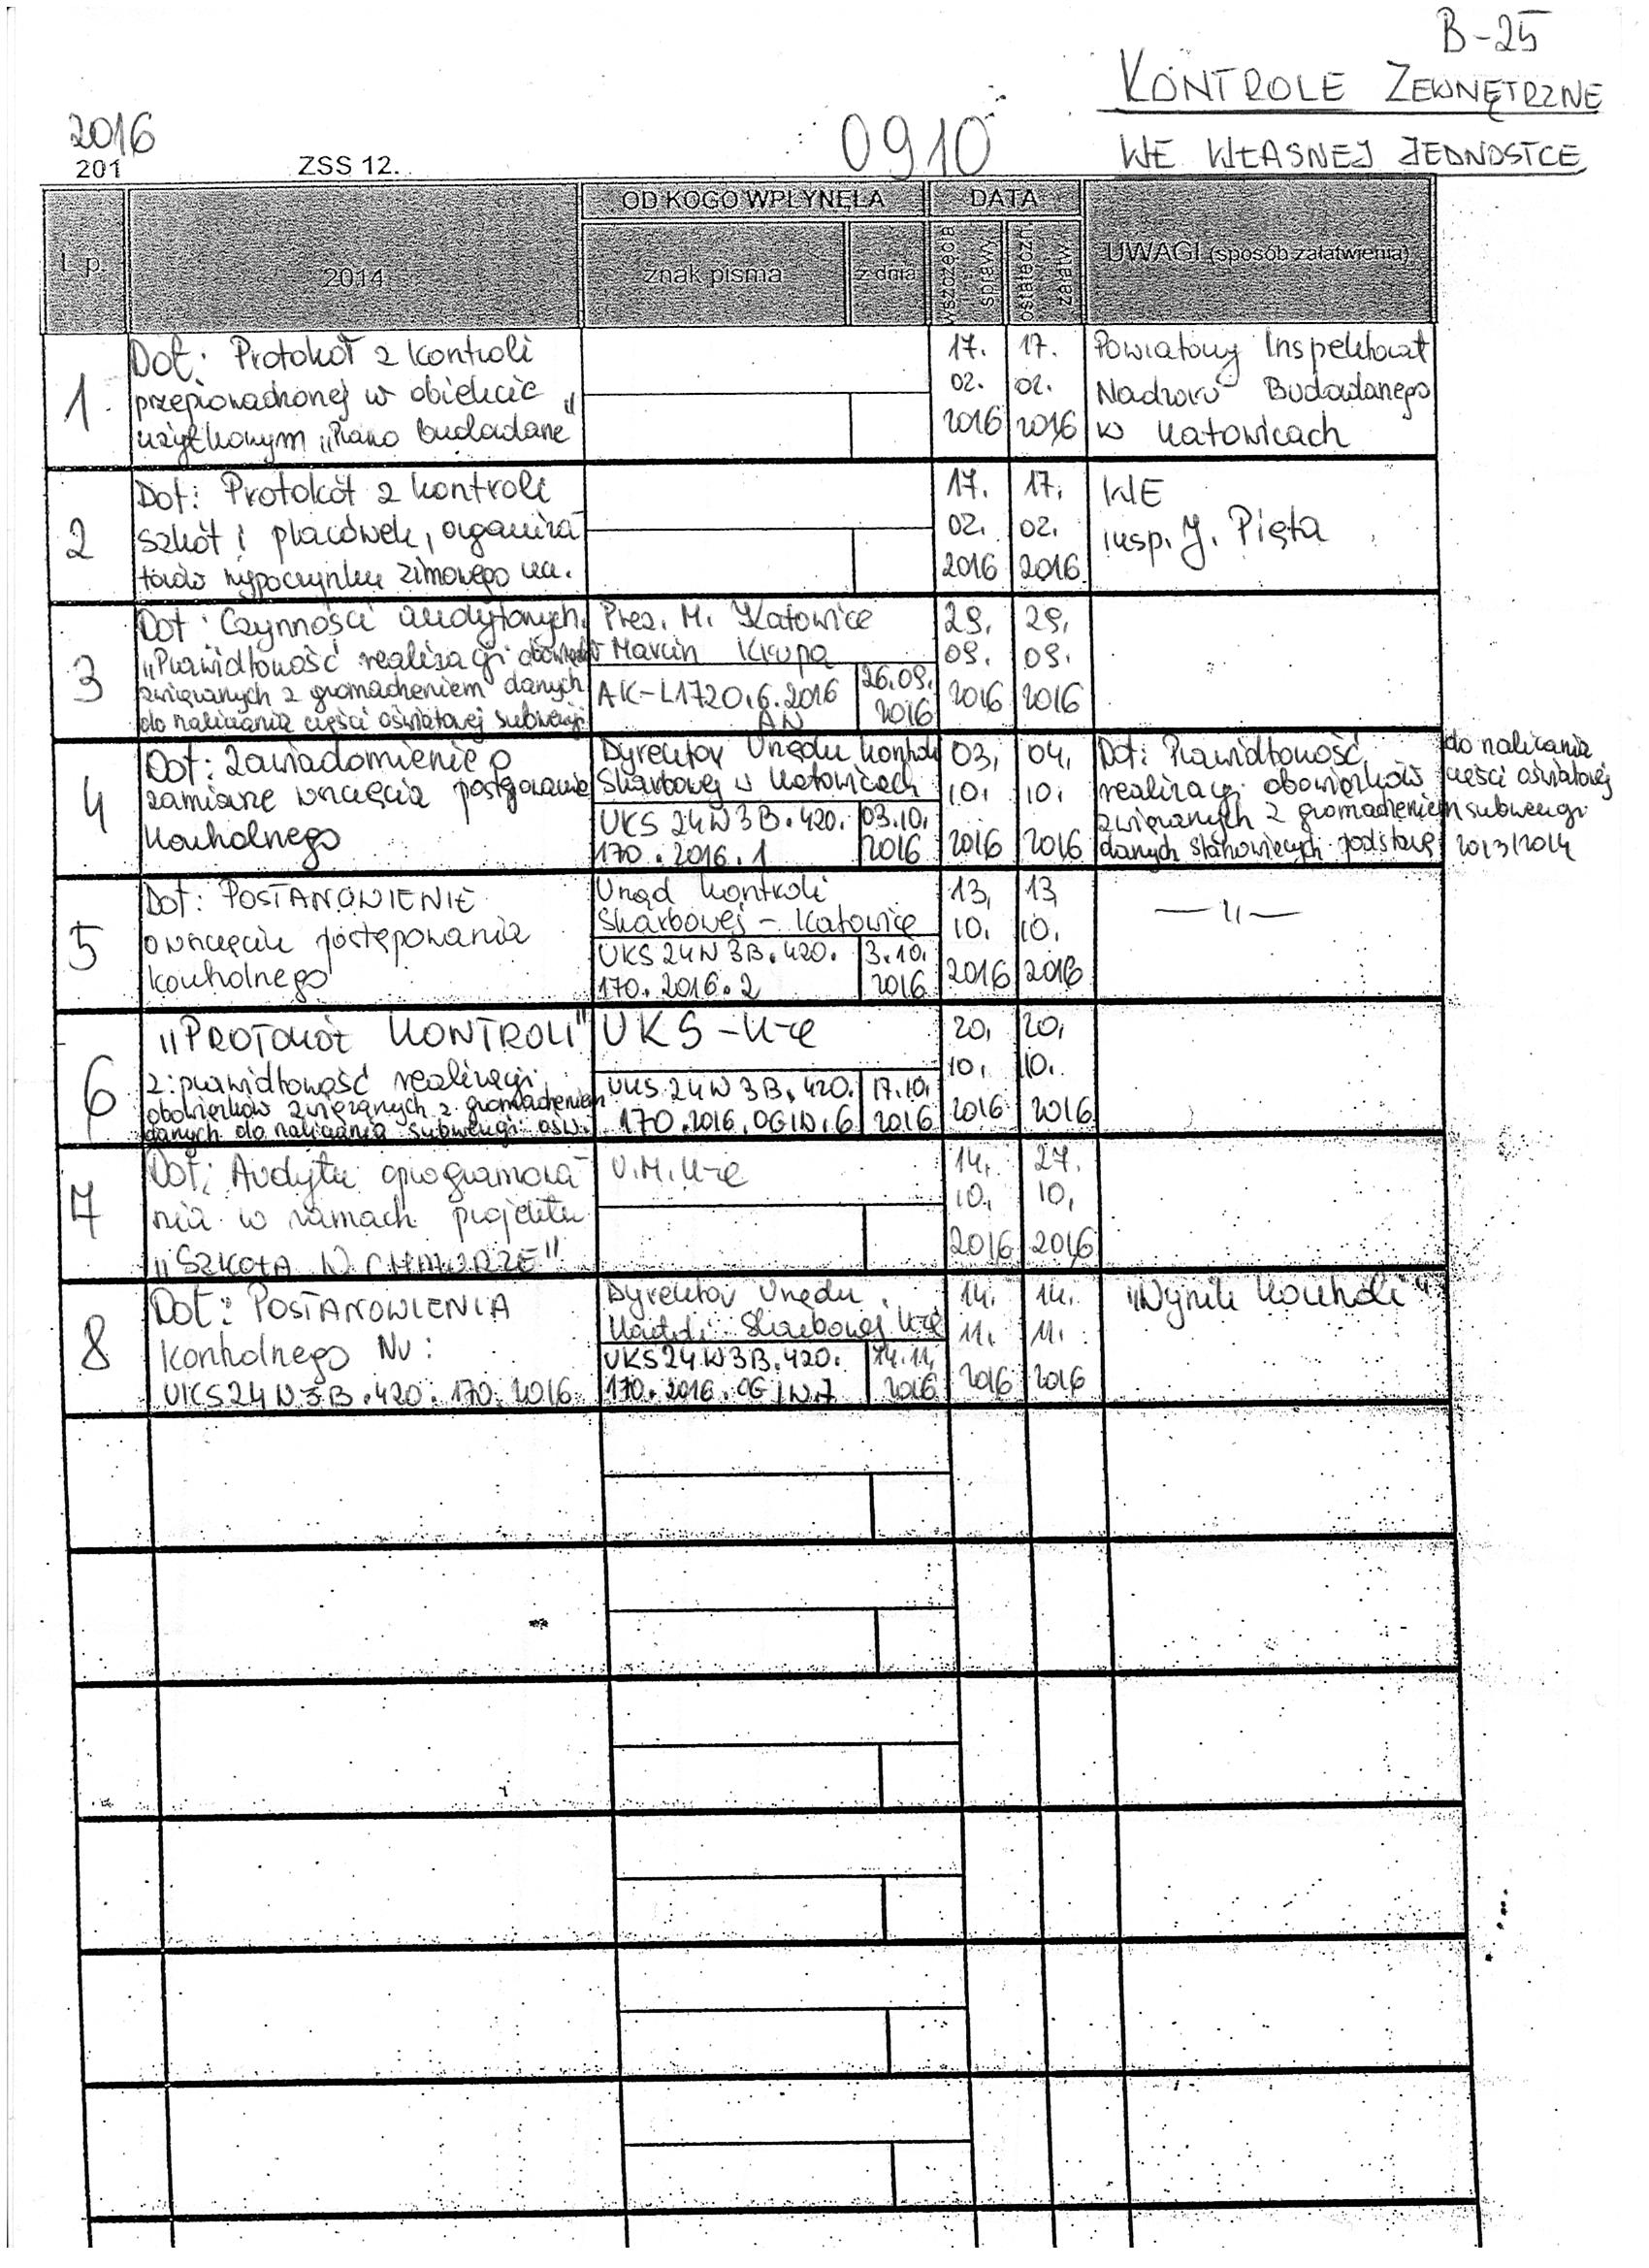 B-25
KONTROLE ZEWNĘTRZNE
WE WŁASNEJ JEDNOSTCE
2016
201 ZSS 12. 0910
L.p. 2014 OD KOGO WPŁYNĘŁA DATA UWAGI (sposób załatwienia)
znak pisma z dnia wszczęcia sprawy ostateczn. załatw.
1. Dot: Protokół z kontroli
przeprowadzonej w obiekcie
użytkowym „Prawo budowlane"
17. 02. 2016
17. 02. 2016
Powiatowy Inspektorat
Nadzoru Budowlanego
w Katowicach
2 Dot: Protokół z kontroli
szkół i placówek, organiza-
torów wypoczynku zimowego
17. 02. 2016
17. 02. 2016
WE
insp. J. Pięta
3 Dot: Czynności audytowych
„Prawidłowość realizacji
związanych z gromadzeniem danych
do naliczania części oświatowej subwencji
Prez. M. Katowice
Marcin Krupa
AK-L1720.6.2016
AN
26.09.
2016
29. 09. 2016
29. 09. 2016
4 Dot: Zawiadomienie o
zamiarze wszczęcia postępowania
kontrolnego
Dyrektor Urzędu Kontroli
Skarbowej w Katowicach
UKS 24W3B.420.
170.2016.1
03.10.
2016
03. 10. 2016
04. 10. 2016
Dot: Prawidłowość
realizacji obowiązków
związanych z gromadzeniem
danych stanowiących podstawę
do naliczania
części oświatowej
subwencji
2013/2014
5 Dot: POSTANOWIENIE
o wszczęciu postępowania
kontrolnego
Urząd Kontroli
Skarbowej - Katowice
UKS 24W3B.420.
170.2016.2
3.10.
2016
13. 10. 2016
13. 10. 2016
—„—
6 „PROTOKÓŁ KONTROLI"
z: prawidłowość realizacji
obowiązków związanych z gromadzeniem
danych do naliczania subwencji ośw.
UKS - K-ce
UKS 24W3B.420.
170.2016.OGIW.6
17.10.
2016
20. 10. 2016
20. 10. 2016
7 Dot: Audytu oprogramowa-
nia w ramach projektu
„SZKOŁA W CHMURZE"
U.M. K-ce
14. 10. 2016
27. 10. 2016
8 Dot: POSTANOWIENIA
kontrolnego Nr:
UKS24W3B.420.170.2016
Dyrektor Urzędu
Kontroli Skarbowej K-ce
UKS24W3B.420.
170.2016.OGIW.7
14.11.
2016
14. 11. 2016
14. 11. 2016
„Wynik kontroli"